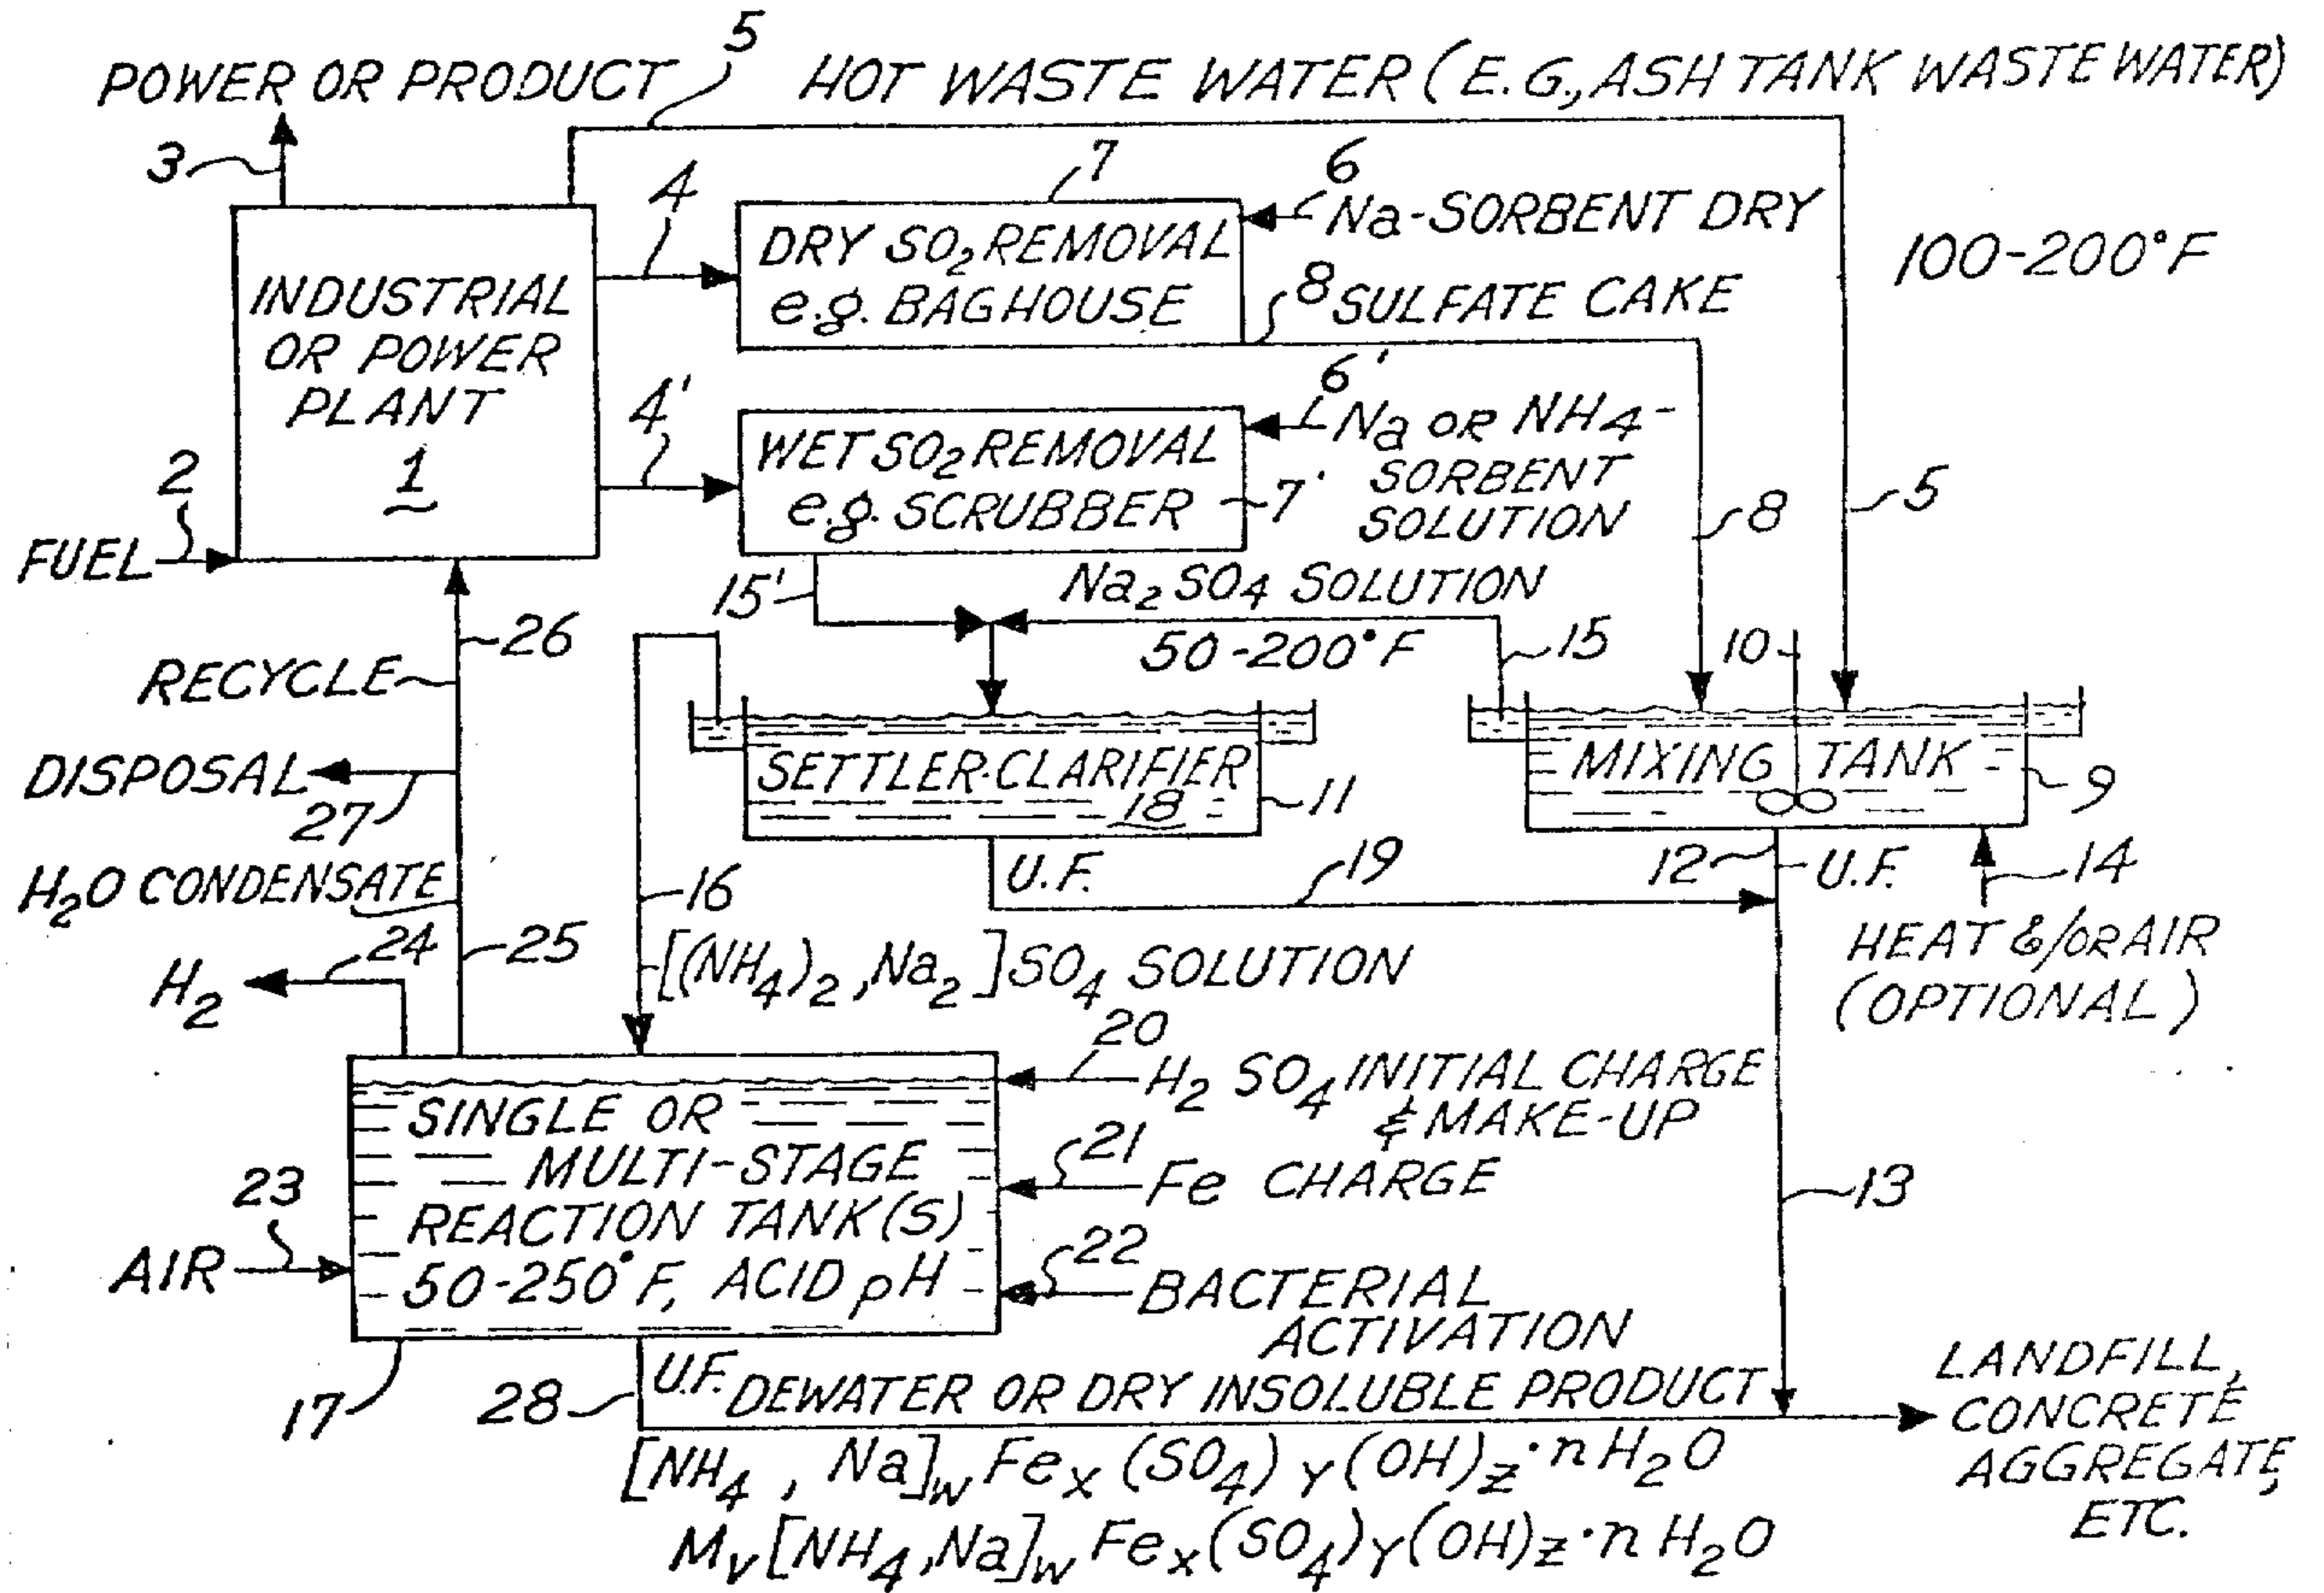 5
POWER OR PRODUCT
HOT WASTE WATER (E.G., ASH TANK WASTE WATER)
3
4
7
6
Na-SORBENT DRY
DRY SO₂ REMOVAL
e.g. BAGHOUSE
100-200°F
8 SULFATE CAKE
INDUSTRIAL
OR POWER
PLANT
1
4'
6'
Na OR NH₄-
SORBENT
SOLUTION
WET SO₂ REMOVAL
e.g. SCRUBBER
7'
8
5
2
FUEL
15'
Na₂SO₄ SOLUTION
50-200°F
15
10
26
RECYCLE
SETTLER-CLARIFIER
18
11
MIXING TANK
9
DISPOSAL
27
U.F.
19
12
U.F.
14
HEAT &/OR AIR
(OPTIONAL)
H₂O CONDENSATE
16
24
25
H₂
[(NH₄)₂, Na₂]SO₄ SOLUTION
20
H₂SO₄ INITIAL CHARGE
& MAKE-UP
SINGLE OR
MULTI-STAGE
REACTION TANK(S)
50-250°F, ACID pH
21
Fe CHARGE
13
23
AIR
22
BACTERIAL
ACTIVATION
17
28
U.F.
DEWATER OR DRY INSOLUBLE PRODUCT
LANDFILL,
CONCRETE
AGGREGATE,
ETC.
[NH₄, Na]w Feₓ (SO₄)Y (OH)z·nH₂O
Mv[NH₄, Na]w Feₓ(SO₄)Y(OH)z·nH₂O